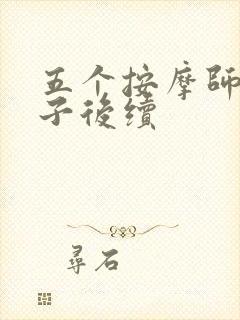 五个按摩師
子後續
尋石